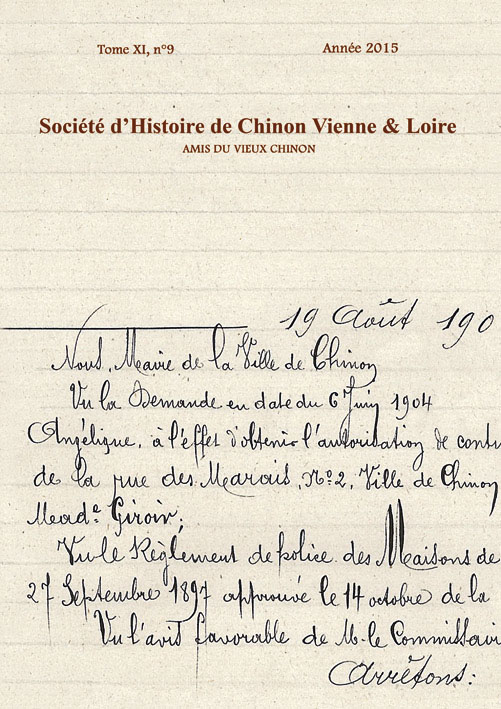 Tome XI, n°9
Année 2015
Société d'Histoire de Chinon Vienne & Loire
AMIS DU VIEUX CHINON
19 Août 190
Nous, Maire de la Ville de Chinon
Vu la Demande en date du 6 Juin 1904
Angélique, à l'effet d'obtenir l'autorisation de contu
de la rue des Marais, No 2, Ville de Chinon
Mead^e Giroir;
Vu le Règlement de police des Maisons de
27 Septembre 1897 approuvé le 14 octobre de la
Vu l'avis favorable de M. le Commissair
Arrêtons: